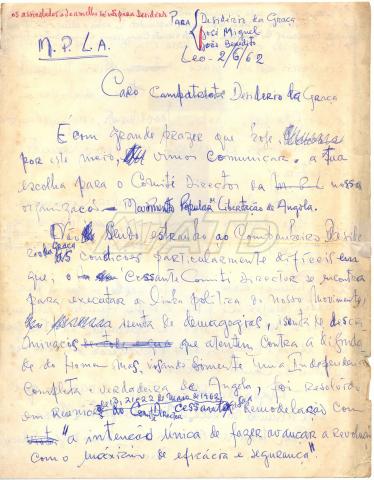 os assinalados a vermelho só vão para Desidério
PARA Desidério da Graça
José Miguel
João Benedito
M.P.L.A.
Leo - 2/6/62
Caro Compatriota Desidério da Graça
É com grande prazer que hoje,
por este meio, vimos comunicar a tua
escolha para o Comité Director da nossa
organização - Movimento Popular Libertação de Angola.
Não sendo estranho ao Companheiro Desidé
rio da Graça as condições particularmente difíceis em
que o Cessante Comité Director se encontra
para executar a linha política do nosso Movimento,
isenta de demagogias, isenta de discri
minações que atentem contra a dignida
de do homem mas, visando somente uma Independência
completa e verdadeira de Angola, foi resolvido
em Reunião de 13, 21 e 22 de Maio de 1962
do Comité Director cessante, remodelação com
"a intenção única de fazer avançar a revolução
com o máximo de eficácia e segurança".